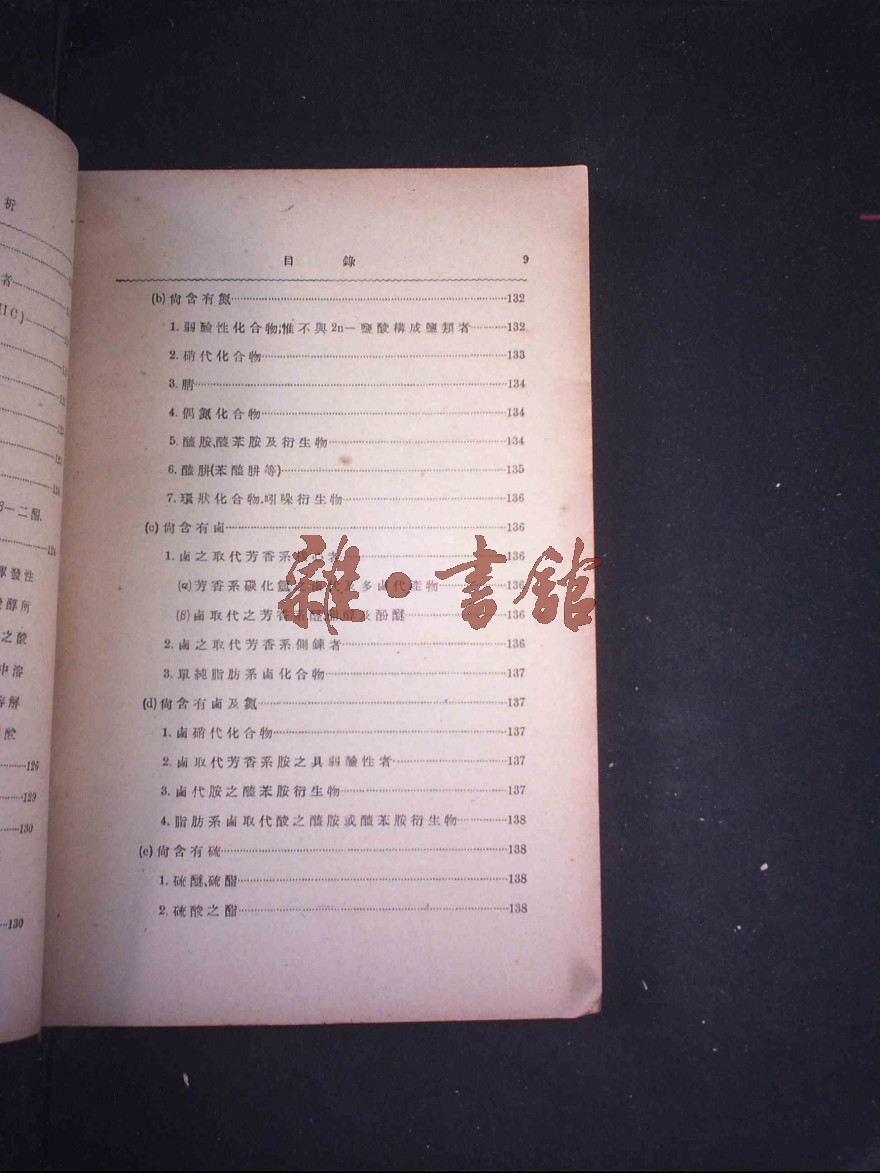 析
者
IIC)
β—二酮.
單發性
酸醇所
之酸
中溶
容解
酸
126
129
130
130
目 錄 9
(b) 尙含有氮 132
1. 弱鹼性化合物,惟不與 2n— 鹽酸構成鹽類者 132
2. 硝代化合物 133
3. 腈 134
4. 偶氮化合物 134
5. 醯胺、醯苯胺及衍生物 134
6. 醯肼(苯醯肼等) 135
7. 環狀化合物.吲哚衍生物 136
(c) 尙含有鹵 136
1. 鹵之取代芳香系 者 136
(α) 芳香系碳化氫之 代及多鹵代產物 136
(β) 鹵取代之芳香系醛 及酚醚 136
2. 鹵之取代芳香系側鍊者 136
3. 單純脂肪系鹵化合物 137
(d) 尙含有鹵及氮 137
1. 鹵硝代化合物 137
2. 鹵取代芳香系胺之具弱鹼性者 137
3. 鹵代胺之醯苯胺衍生物 137
4. 脂肪系鹵取代酸之醯胺或醯苯胺衍生物 138
(e) 尙含有硫 138
1. 硫醚、硫酯 138
2. 硫酸之酯 138
雜·書館